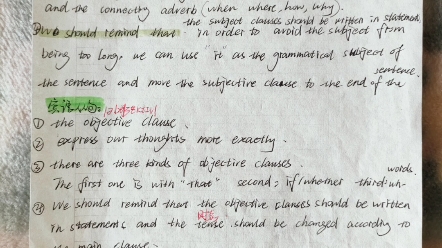 and the connecting adverb (when where, how, why).
the subject clauses should be written in statement.
③We should remind that in order to avoid the subject from
being too long, we can use it as the grammatical subject of
the sentence and move the subjective clause to the end of the
sentence.
宾语从句:
① the objective clause.
② express our thoughts more exactly.
③ there are three kinds of objective clauses.
The first one is with "that" second: if/whether third: wh-
words.
④ We should remind that the objective clauses should be written
in statements and the tense should be changed according to
the main clause.